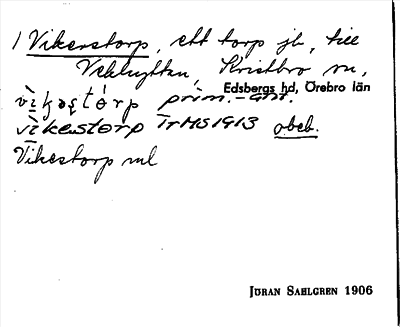 / Vikerstorp, ett torp jb, till
Vekhyttan, Kristbro sn,
Edsbergs hd, Örebro län
prim.-ant.
vikestorp TrMS1913 obeb.
Vikestorp ml
JÖRAN SAHLGREN 1906